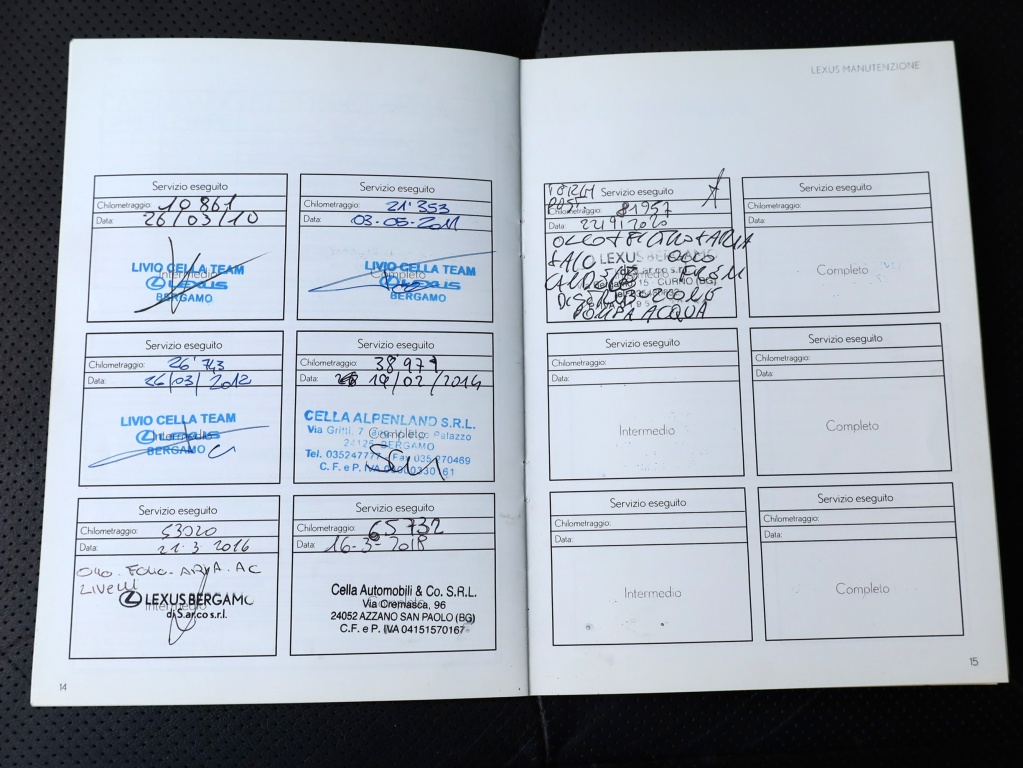 LEXUS MANUTENZIONE
Servizio eseguito
Chilometraggio: 10 861
Data: 26/03/10
Intermedio
LIVIO CELLA TEAM
LEXUS
BERGAMO
Servizio eseguito
Chilometraggio: 21'353
Data: 03-05-2011
Completo
LIVIO CELLA TEAM
LEXUS
BERGAMO
Servizio eseguito
Chilometraggio: 26'743
Data: 26/03/2012
Intermedio
LIVIO CELLA TEAM
LEXUS
BERGAMO
Servizio eseguito
Chilometraggio: 38'977
Data: 19/02/2014
Completo
CELLA ALPENLAND S.R.L.
Via Gritti, 7 Palazzo
24126 BERGAMO
Tel. 035247777 Fax 035 270469
C. F. e P. IVA
Servizio eseguito
Chilometraggio: 53020
Data: 21.3 2016
Olio. Filtro. ARIA. AC
Livelli
Intermedio
LEXUS BERGAMO
di S.ar.co s.r.l.
Servizio eseguito
Chilometraggio: 65732
Data: 16-3-2018
Completo
Cella Automobili & Co. S.R.L.
Via Cremasca, 96
24052 AZZANO SAN PAOLO (BG)
C.F. e P. IVA 04151570167
14
Servizio eseguito
POST.
Chilometraggio: 81957
Data: 22/9/2020
OLIO + FILTRO + ARIA
LEXUS BERGAMO
di S.ar.co s.r.l.
CURNO (BG)
POMPA ACQUA
Servizio eseguito
Chilometraggio:
Data:
Completo
Servizio eseguito
Chilometraggio:
Data:
Intermedio
Servizio eseguito
Chilometraggio:
Data:
Completo
Servizio eseguito
Chilometraggio:
Data:
Intermedio
Servizio eseguito
Chilometraggio:
Data:
Completo
15